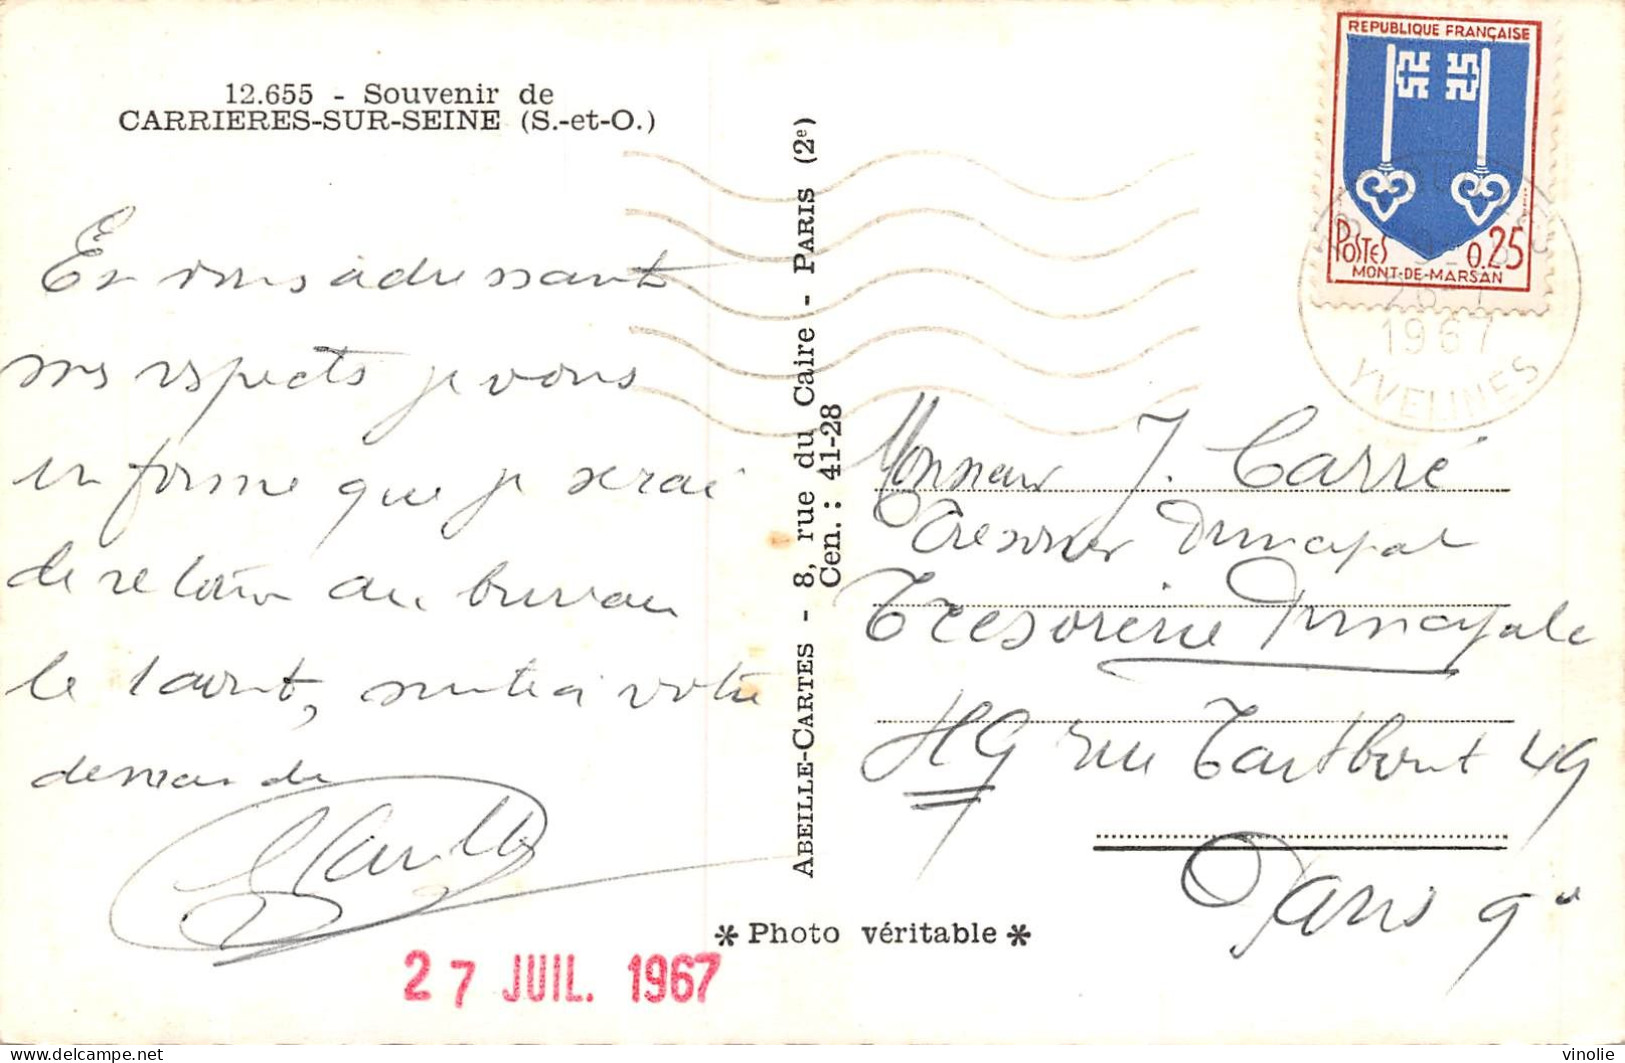 12.655 - Souvenir de
CARRIERES-SUR-SEINE (S.-et-O.)
En vous adressant
mes respects je vous
informe que je serai
de retour au bureau
le 1 aout, suite à votre
demande
27 JUIL. 1967
ABEILLE-CARTES - 8, rue du Caire - PARIS (2e)
Cen. : 41-28
* Photo véritable *
REPUBLIQUE FRANÇAISE
POSTES 0.25
MONT-DE-MARSAN
26-7
1967
YVELINES
Monsieur J. Carré
Tresorier Principal
Tresorerie Principale
49 rue Taitbout 49
Paris 9e
vinolie